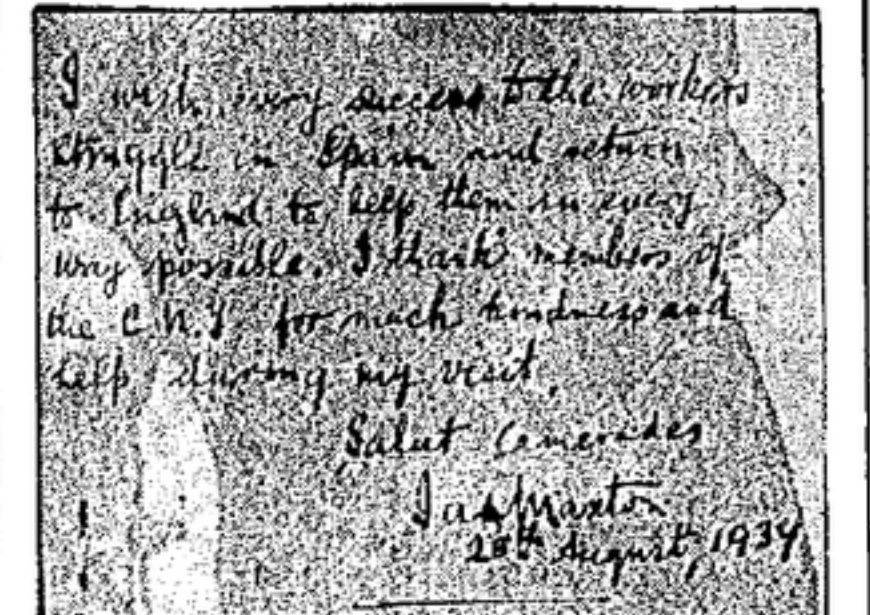 I wish every success to the workers
struggle in Spain and return
to England to help them in every
way possible. I thank members of
the C.N.T. for much kindness and
help during my visit.
Salut Comerades
Jas Maxton
August, 193